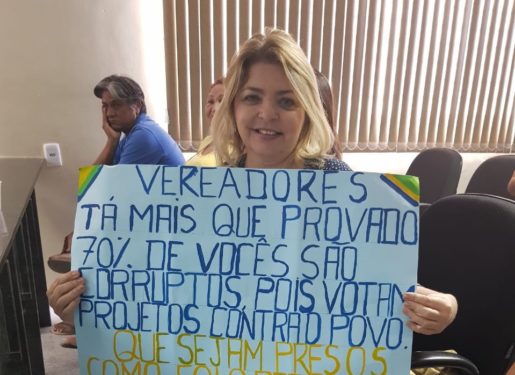 VEREADORES
TÁ MAIS QUE PROVADO
70% DE VOCÊS SÃO
CORRUPTOS POIS VOTAM
PROJETOS CONTRA O POVO.
QUE SEJAM PRESOS
COMO